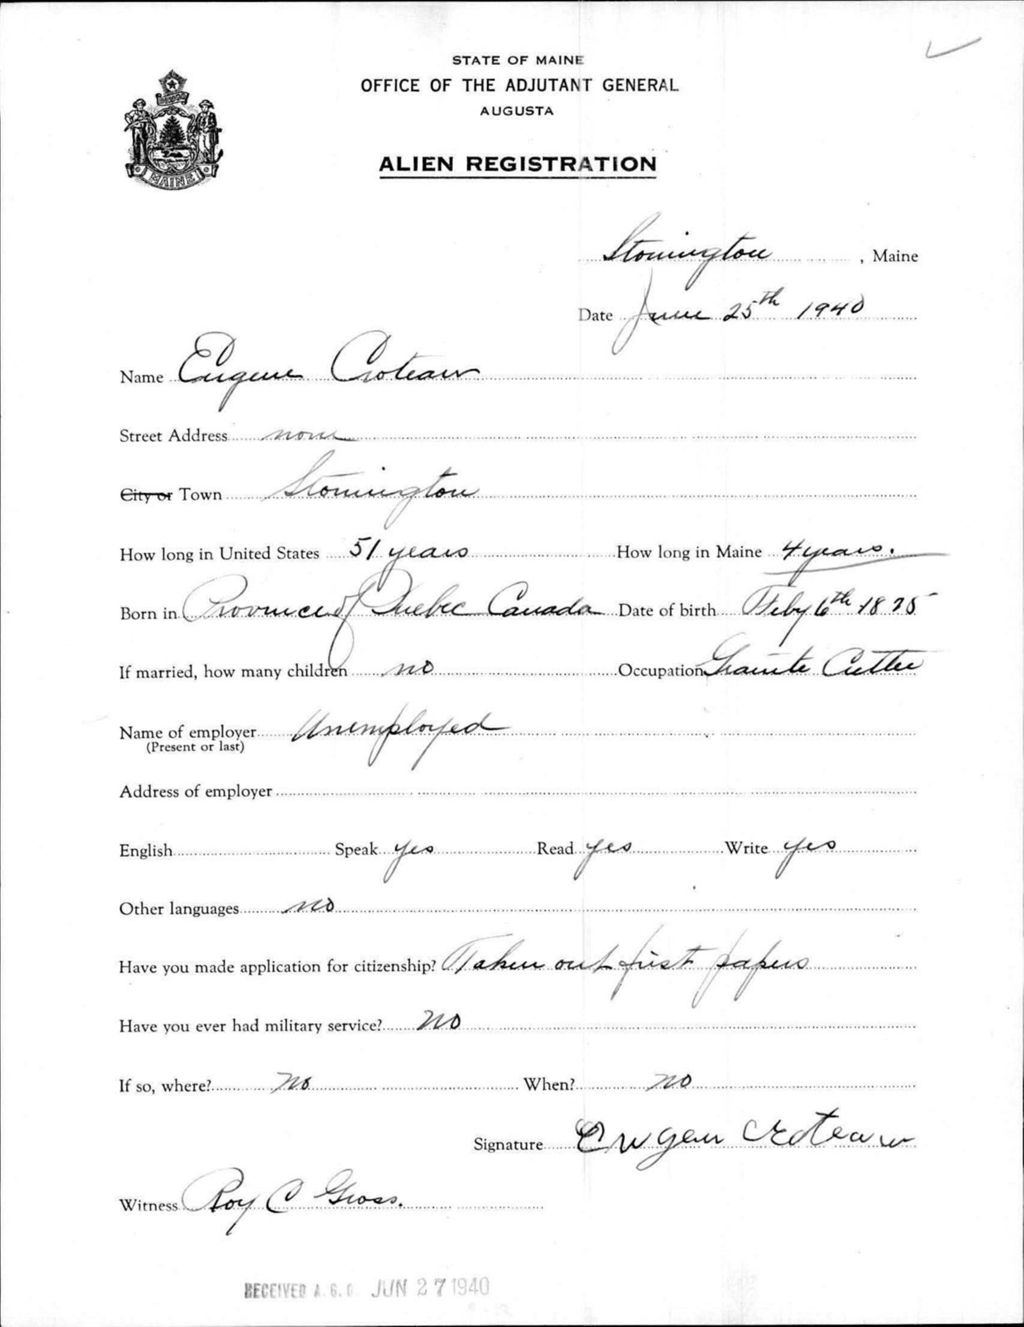 STATE OF MAINE
OFFICE OF THE ADJUTANT GENERAL
AUGUSTA
ALIEN REGISTRATION
MAINE
Stonington, Maine
Date June 25th 1940
Name Eugene Croteau
Street Address none
City or Town Stonington
How long in United States 51 years How long in Maine 4 years.
Born in Province of Quebec Canada Date of birth Feby 6th 1875
If married, how many children no Occupation Granite Cutter
Name of employer Unemployed
(Present or last)
Address of employer
English Speak yes Read yes Write yes
Other languages no
Have you made application for citizenship? Taken out first papers
Have you ever had military service? No
If so, where? No When? no
Signature Eugen Croteau
Witness Roy C Gross.
RECEIVED A.G.O. JUN 27 1940